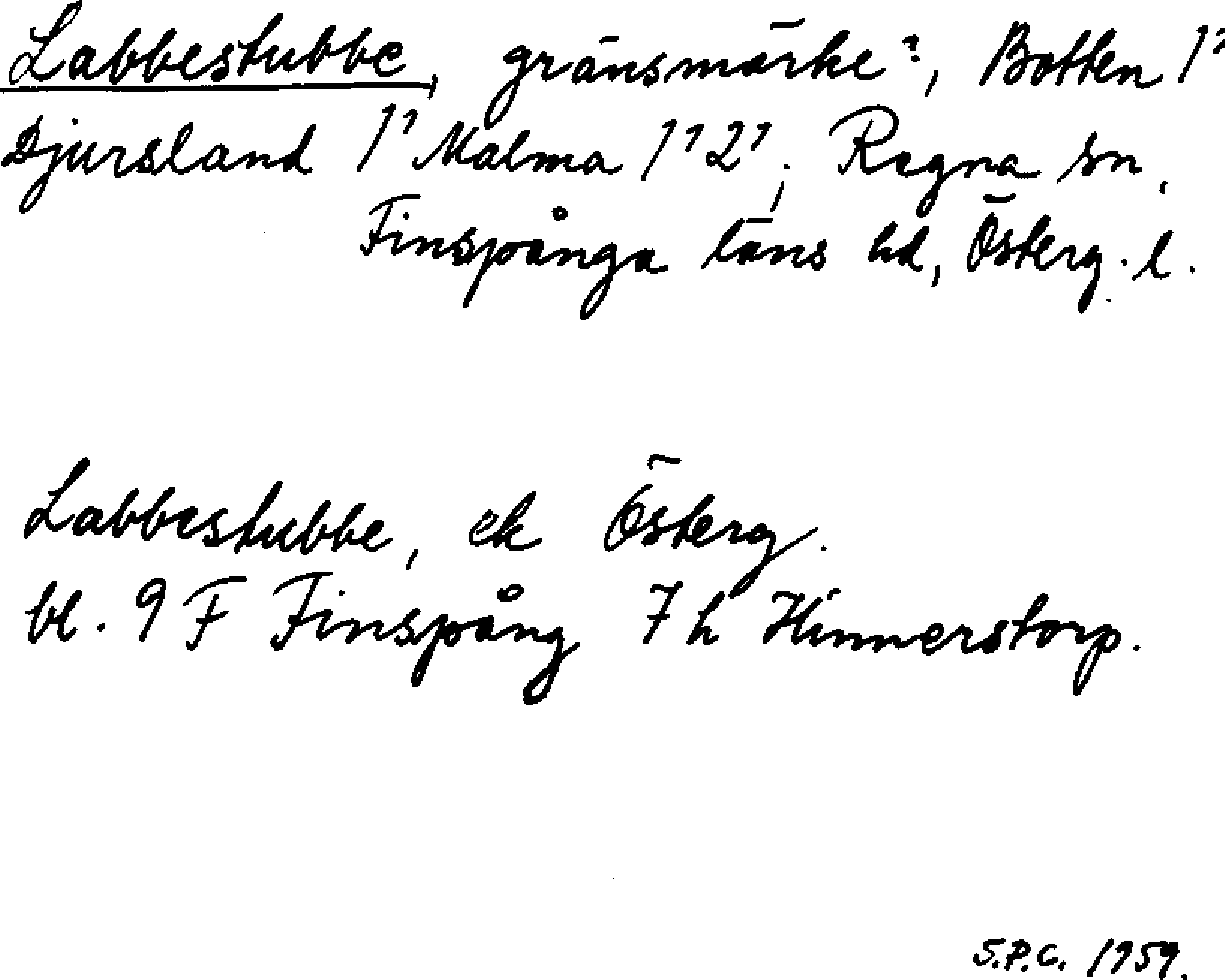 Labbestubbe, gränsmärke?, Botten 1'
Djursland 1' Malma 1' 2'; Regna sn,
Finspånga läns hd, Österg. l.
Labbestubbe, ek Österg.
bl. 9 F Finspång 7 h Hinnerstorp.
S.P.C. 1959.